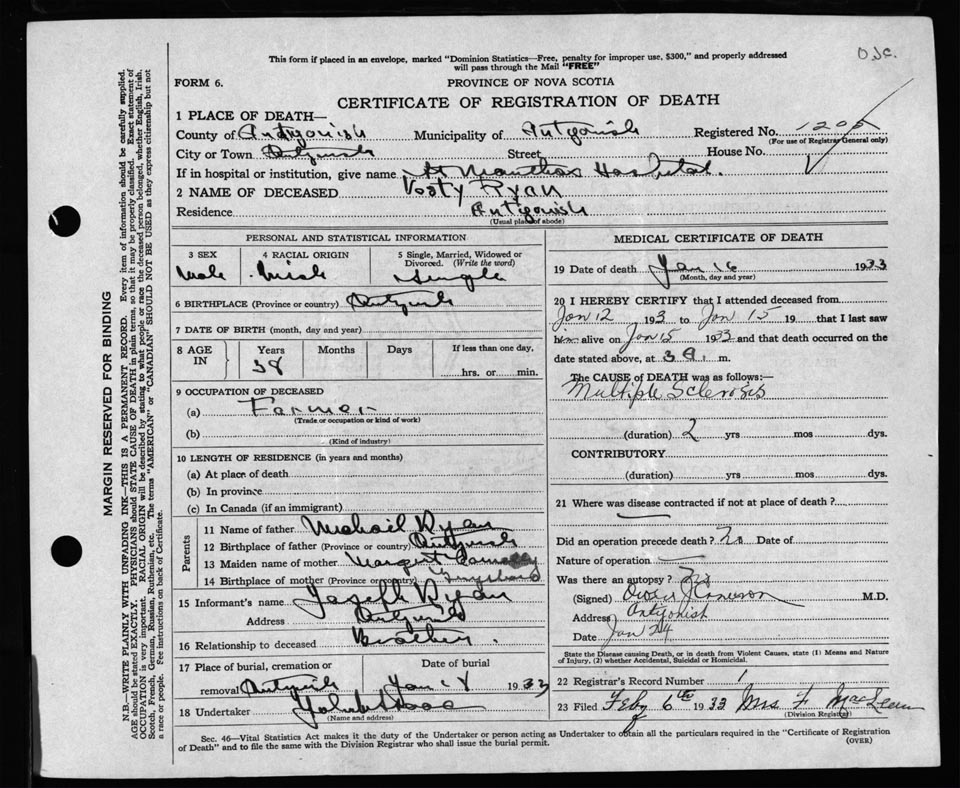 O.J.C.
This form if placed in an envelope, marked "Dominion Statistics—Free, penalty for improper use, $300," and properly addressed
will pass through the Mail "FREE"
FORM 6.
PROVINCE OF NOVA SCOTIA
CERTIFICATE OF REGISTRATION OF DEATH
1 PLACE OF DEATH—
County of Antigonish Municipality of Antigonish Registered No. 1205
(For use of Registrar General only)
City or Town Antigonish Street House No.
If in hospital or institution, give name St Marthas Hospital.
2 NAME OF DECEASED Ryan
Residence Antigonish
(Usual place of abode)
PERSONAL AND STATISTICAL INFORMATION
3 SEX 4 RACIAL ORIGIN 5 Single, Married, Widowed or Divorced. (Write the word)
Male Irish Single
6 BIRTHPLACE (Province or country) Antigonish
7 DATE OF BIRTH (month, day and year)
8 AGE IN Years Months Days If less than one day,
38 hrs. or min.
9 OCCUPATION OF DECEASED
(a) Farmer
(Trade or occupation or kind of work)
(b)
(Kind of industry)
10 LENGTH OF RESIDENCE (in years and months)
(a) At place of death
(b) In province
(c) In Canada (if an immigrant)
Parents
11 Name of father Michail Ryan
12 Birthplace of father (Province or country) Antigonish
13 Maiden name of mother Margert
14 Birthplace of mother (Province or country)
15 Informant's name Joseph Ryan
Address Antigonish
16 Relationship to deceased Brother.
17 Place of burial, cremation or Date of burial
removal Antigonish Jan 18 1933
18 Undertaker
(Name and address)
MEDICAL CERTIFICATE OF DEATH
19 Date of death Jan 16 1933
(Month, day and year)
20 I HEREBY CERTIFY that I attended deceased from
Jan 12 193 to Jan 15 19 that I last saw
him alive on Jan 15 1933 and that death occurred on the
date stated above, at 3 a. m.
The CAUSE OF DEATH was as follows:—
Multiple Sclerosis
(duration) 2 yrs mos dys.
CONTRIBUTORY
(duration) yrs mos dys.
21 Where was disease contracted if not at place of death?
Did an operation precede death? No Date of
Nature of operation
Was there an autopsy? No
(Signed) J Cameron M.D.
Address Antigonish
Date Jan 24
State the Disease causing Death, or in death from Violent Causes, state (1) Means and Nature
of Injury, (2) whether Accidental, Suicidal or Homicidal.
22 Registrar's Record Number 1
23 Filed Feby 6th 1933 Mrs F MacLean
(Division Registrar)
Sec. 46—Vital Statistics Act makes it the duty of the Undertaker or person acting as Undertaker to obtain all the particulars required in the "Certificate of Registration
of Death" and to file the same with the Division Registrar who shall issue the burial permit. (OVER)
MARGIN RESERVED FOR BINDING
N.B.—WRITE PLAINLY WITH UNFADING INK—THIS IS A PERMANENT RECORD. Every item of information should be carefully supplied.
AGE should be stated EXACTLY. PHYSICIANS should STATE CAUSE OF DEATH in plain terms, so that it may be properly classified. Exact statement of
OCCUPATION is very important. RACIAL ORIGIN will be described by stating to what people or race the deceased person belonged, whether English, Irish,
Scotch, French, German, Russian, Ruthenian, etc. The terms "AMERICAN" or "CANADIAN" SHOULD NOT BE USED as they express citizenship but not
a race or people. Fee instructions on back of Certificate.